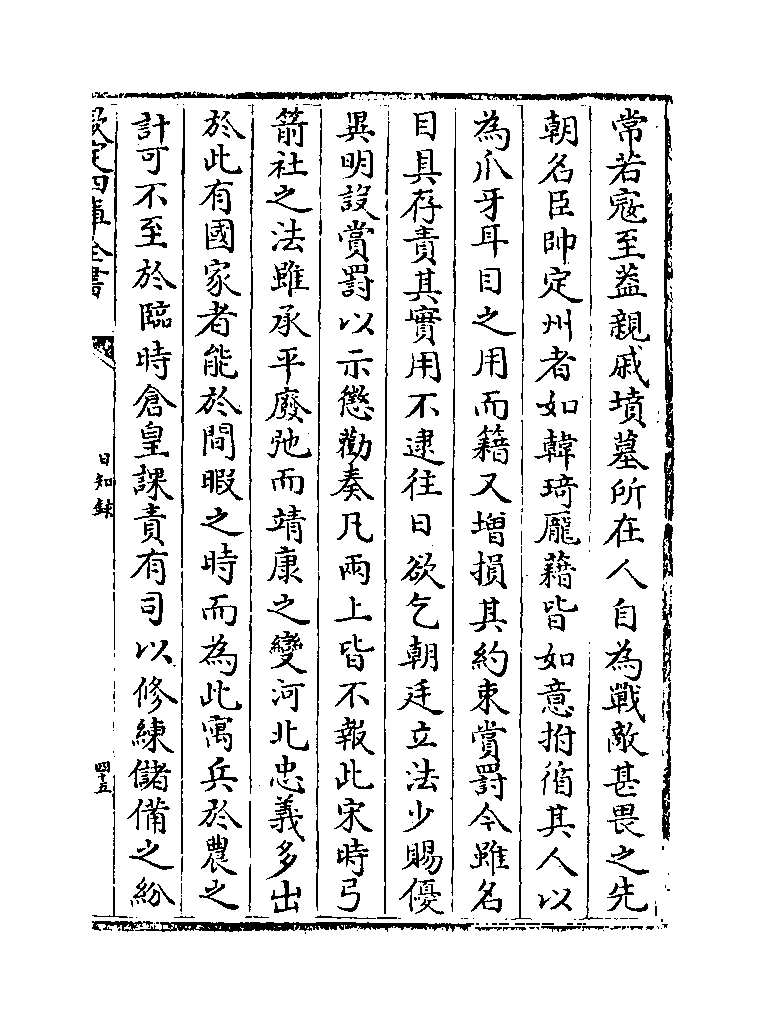 常若寇至葢親戚墳墓所在人自為戰敵甚畏之先
朝名臣帥定州者如韓琦龎藉皆如意拊循其人以
為爪牙耳目之用而籍又增損其約束賞罸今雖名
目具存責其實用不逮往日欲乞朝廷立法少賜優
異明設賞罸以示懲勸奏凡兩上皆不報此宋時弓
箭社之法雖承平廢弛而靖康之變河北忠義多出
於此有國家者能於閒暇之時而為此寓兵於農之
計可不至於臨時倉皇課責有司以修練儲備之紛
欽定四庫全書
日知録
四十五